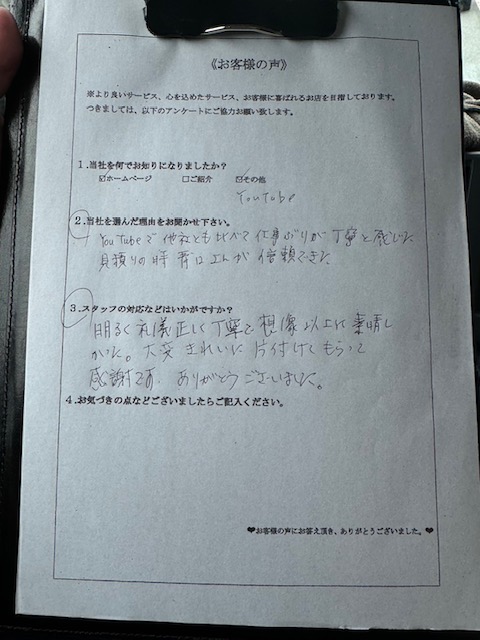 《お客様の声》
※より良いサービス、心を込めたサービス、お客様に喜ばれるお店を目指しております。
つきましては、以下のアンケートにご協力お願い致します。
1.当社を何でお知りになりましたか？
☑ホームページ　☐ご紹介　☑その他
Youtube
2.当社を選んだ理由をお聞かせ下さい。
Youtubeで他社とも比べて仕事ぶりが丁寧と感じた
見積りの時 さんが信頼できた
3.スタッフの対応などはいかがですか？
明るく礼儀正しく丁寧で想像以上に素晴し
かった。大変きれいに片付けてもらって
感謝です。ありがとうございました。
4.お気づきの点などございましたらご記入ください。
❤お客様の声にお答え頂き、ありがとうございました。❤